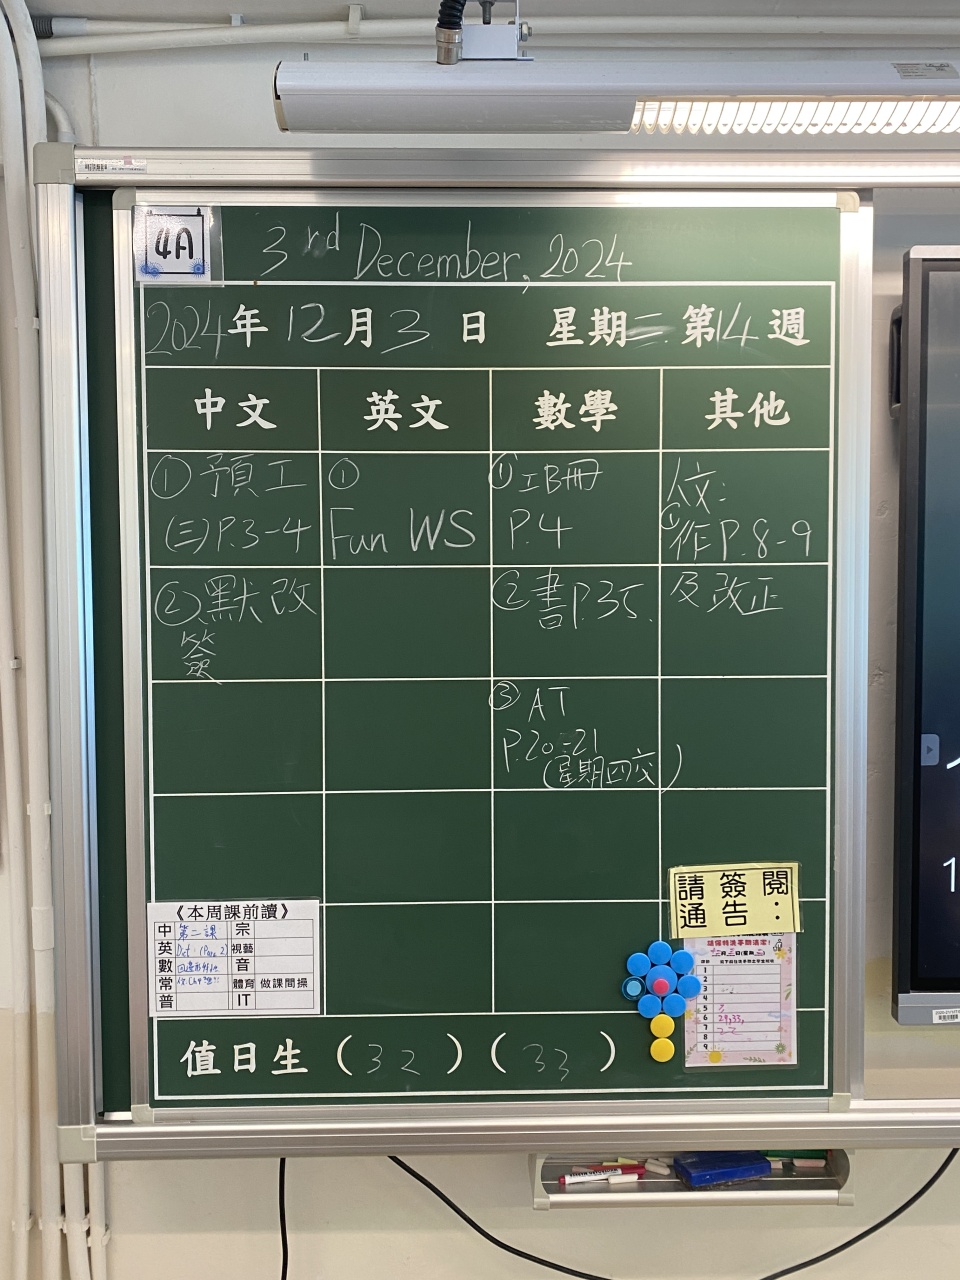 4A
3rd December, 2024
2024年12月3日 星期二 第14週
中文 英文 數學 其他
①預工
(三)P.3-4
②默改
簽
①
Fun WS
①工B冊
P.4
②書P.35.
③AT
P.20-21
(星期四交)
①作P.8-9
及改正
請簽閱
通告:
《本周課前讀》
中 第二課 宗
英 視藝
數 音
常 體育 做課間操
普 IT
1
2
3
4
5
6 29,33,
7
8
9
值日生 (32) (33)